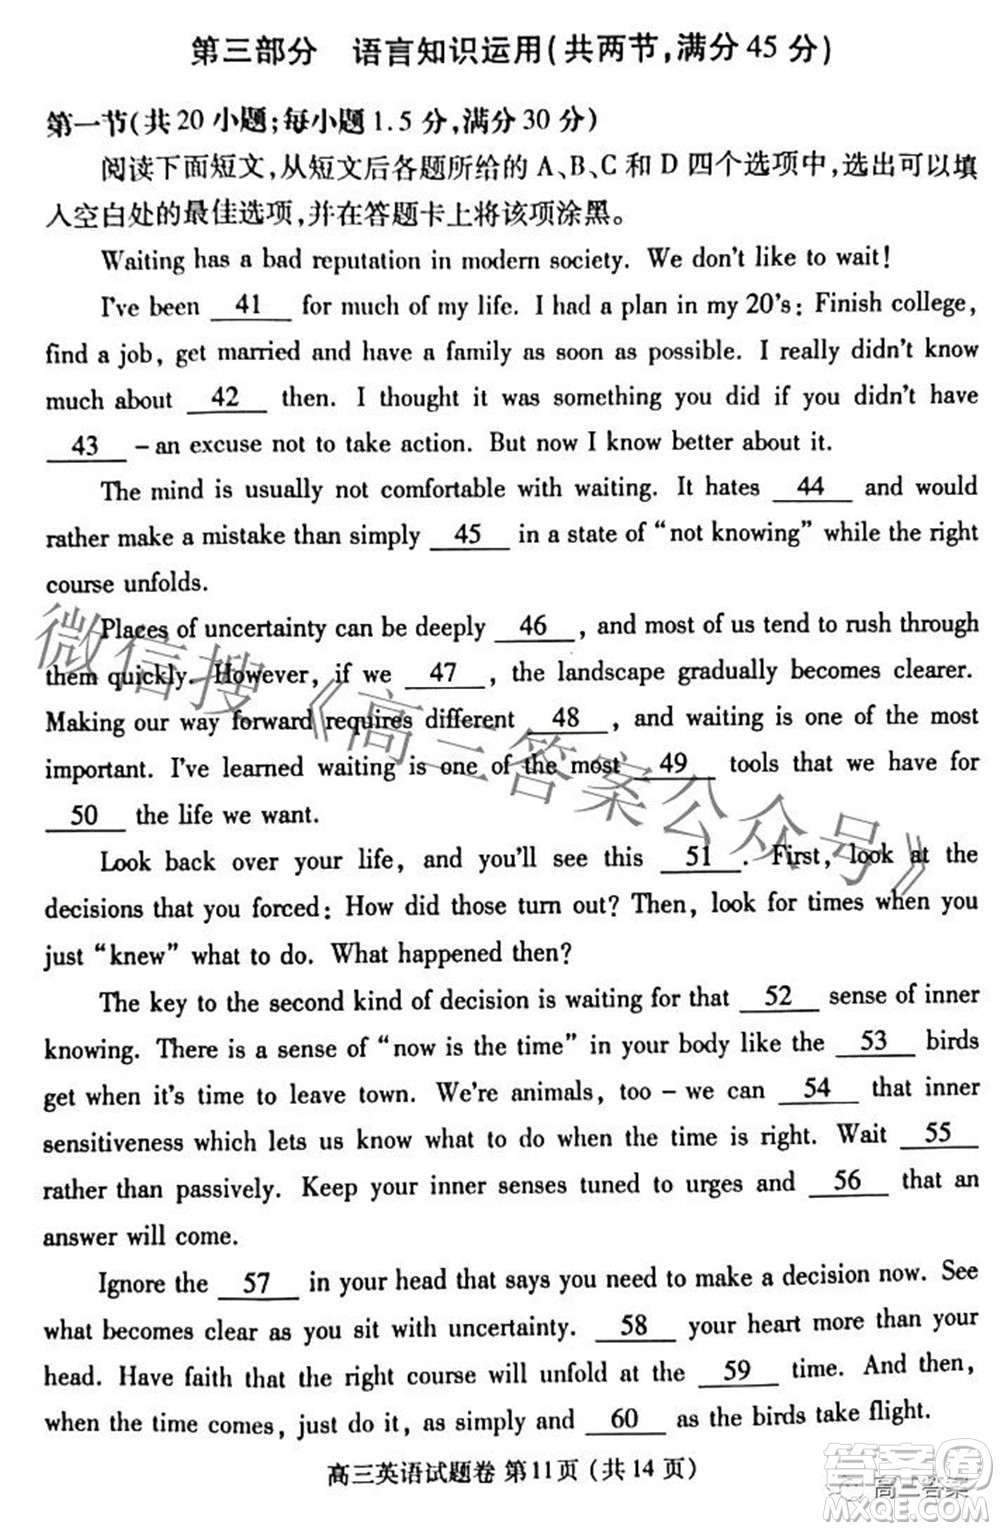 第三部分 语言知识运用(共两节,满分45分)
第一节(共20小题;每小题1.5分,满分30分)
阅读下面短文,从短文后各题所给的A、B、C和D四个选项中,选出可以填
入空白处的最佳选项,并在答题卡上将该项涂黑。
Waiting has a bad reputation in modern society. We don't like to wait!
I've been 41 for much of my life. I had a plan in my 20's: Finish college,
find a job, get married and have a family as soon as possible. I really didn't know
much about 42 then. I thought it was something you did if you didn't have
43 – an excuse not to take action. But now I know better about it.
The mind is usually not comfortable with waiting. It hates 44 and would
rather make a mistake than simply 45 in a state of “not knowing” while the right
course unfolds.
Places of uncertainty can be deeply 46, and most of us tend to rush through
them quickly. However, if we 47, the landscape gradually becomes clearer.
Making our way forward requires different 48, and waiting is one of the most
important. I've learned waiting is one of the most 49 tools that we have for
50 the life we want.
Look back over your life, and you'll see this 51. First, look at the
decisions that you forced: How did those turn out? Then, look for times when you
just “knew” what to do. What happened then?
The key to the second kind of decision is waiting for that 52 sense of inner
knowing. There is a sense of “now is the time” in your body like the 53 birds
get when it's time to leave town. We're animals, too – we can 54 that inner
sensitiveness which lets us know what to do when the time is right. Wait 55
rather than passively. Keep your inner senses tuned to urges and 56 that an
answer will come.
Ignore the 57 in your head that says you need to make a decision now. See
what becomes clear as you sit with uncertainty. 58 your heart more than your
head. Have faith that the right course will unfold at the 59 time. And then,
when the time comes, just do it, as simply and 60 as the birds take flight.
高三英语试题卷 第11页(共14页)
微信搜《高三答案公众号》
答案圈
高三答案
MXQE.COM